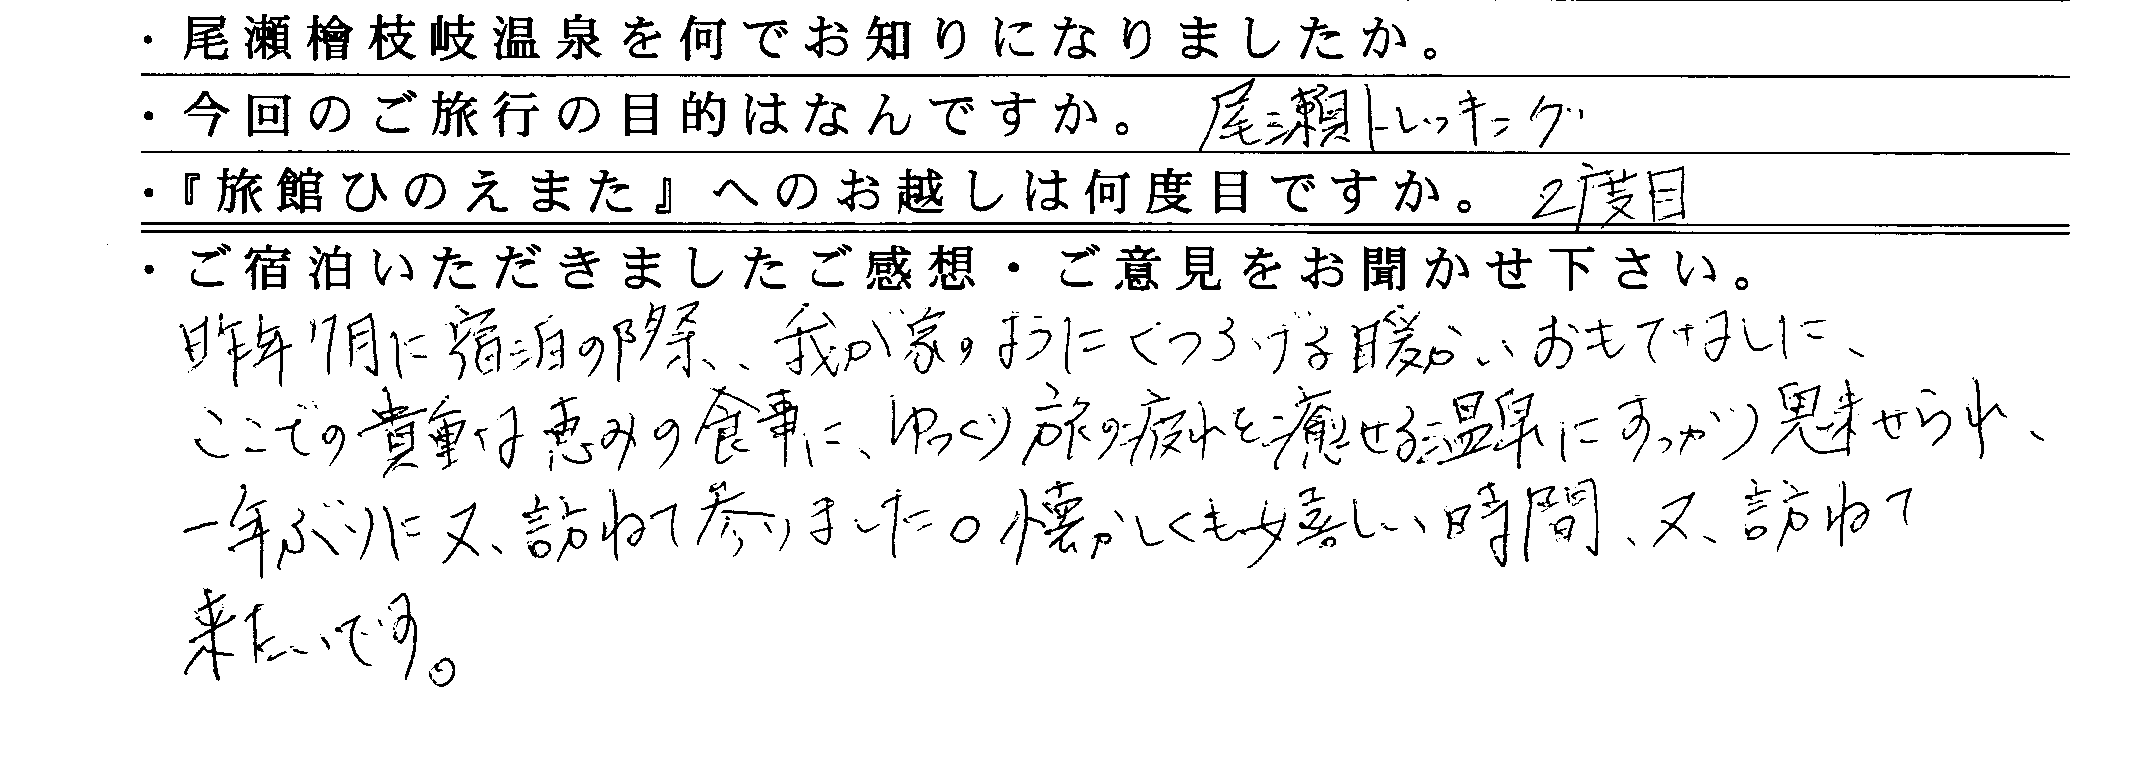 ・尾瀬檜枝岐温泉を何でお知りになりましたか。
・今回のご旅行の目的はなんですか。 尾瀬トレッキング
・『旅館ひのえまた』へのお越しは何度目ですか。 2度目
・ご宿泊いただきましたご感想・ご意見をお聞かせ下さい。
昨年7月に宿泊の際、我が家のようにくつろげる暖かいおもてなしに、
ここでの貴重な恵みの食事に、ゆっくり旅の疲れを癒せる温泉にすっかり魅せられ、
一年ぶりに又、訪ねて参りました。懐かしくも嬉しい時間、又、訪ねて
来たいです。